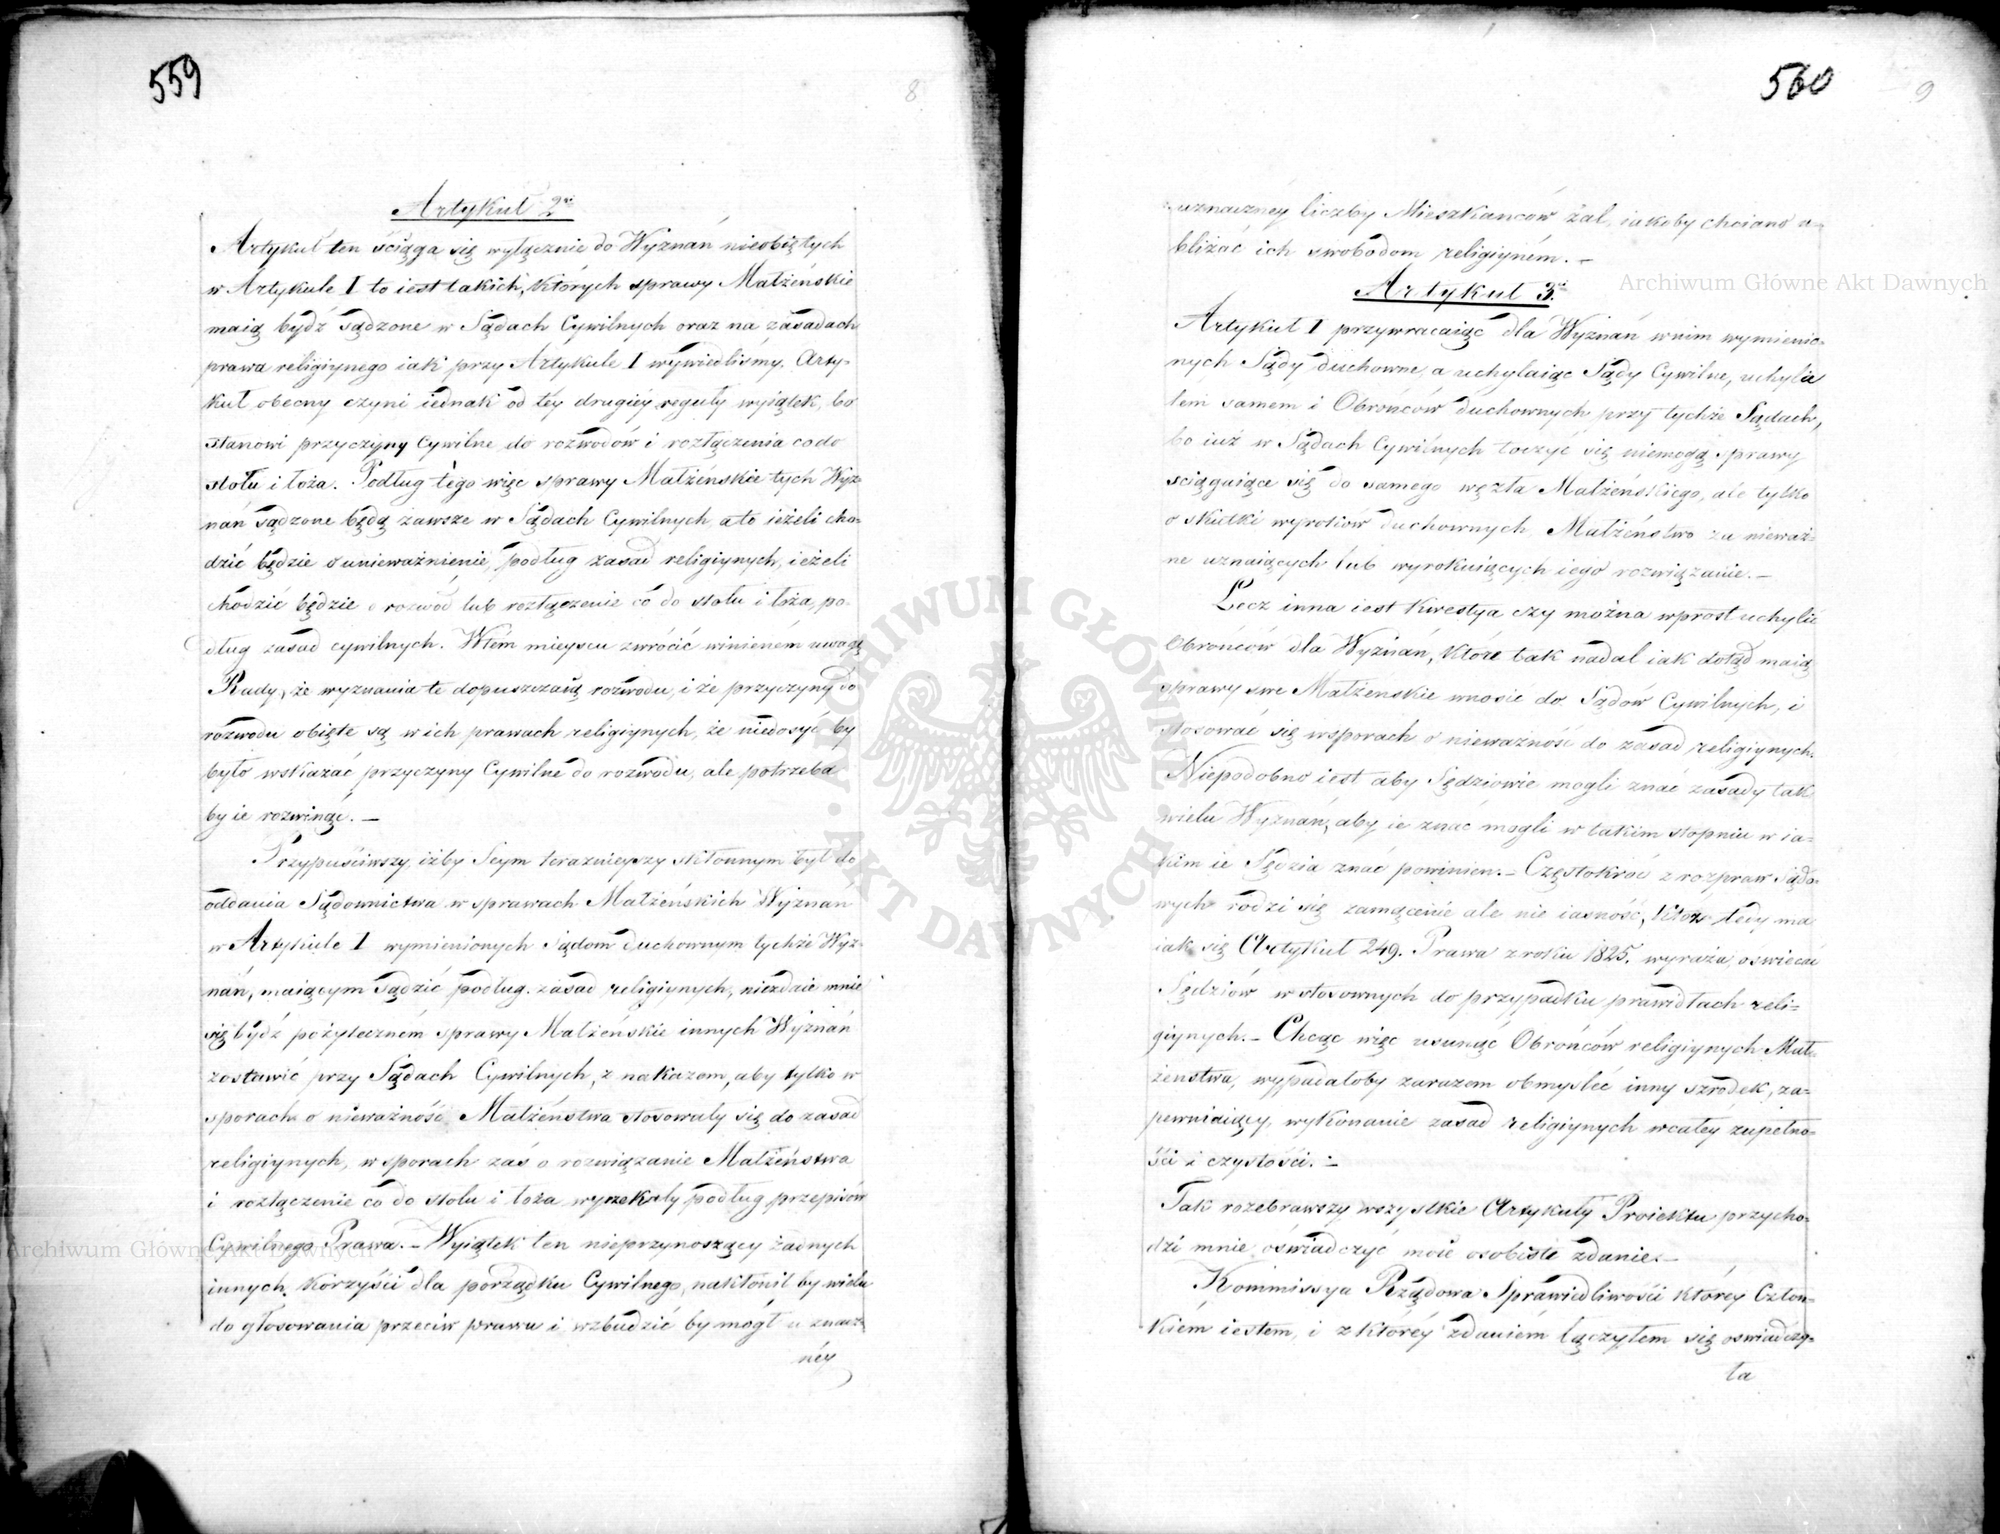 559
8
Artykuł 2gi
Artykuł ten ściąga się wyłącznie do Wyznań nieobiętych
w Artykule I to iest takich, których sprawy Małżeńskie
maią bydź sądzone w Sądach Cywilnych oraz na zasadach
prawa religiynego iak przy Artykule I wywiedliśmy. Arty-
kuł obecny czyni iednak od téy drugiéy reguły wyiątek, bo
stanowi przyczyny Cywilne do rozwodów i rozłączenia co do
stołu i łoża. Podług tego więc sprawy Małżeńskie tych Wyz-
nań sądzone będą zawsze w Sądach Cywilnych, a to ieżeli cho-
dzić będzie o unieważnienie, podług zasad religiynych, ieżeli
chodzić będzie o rozwód lub rozłączenie co do stołu i łoża, po-
dług zasad cywilnych. W tém mieyscu zwrócić winienem uwagę
Rady, że wyznania te dopuszczaią rozwodu, i że przyczyny do
rozwodu obięte są w ich prawach religiynych, że niedosyć by
było wskazać przyczyny Cywilne do rozwodu, ale potrzeba
by ie rozwinąć. —
Przypuściwszy, iżby Seym teraznieyszy skłonnym był do
oddania Sądownictwa w sprawach Małżeńskich Wyznań
w Artykule I wymienionych Sądom duchownym tychże Wyz-
nań, maiącym sądzić podług zasad religiynych, niezdaie mnie
się bydź pożytecznem sprawy Małżeńskie innych Wyznań
zostawić przy Sądach Cywilnych, z nakazem, aby tylko w
sporach o nieważność Małżeństwa stosowały się do zasad
religiynych, w sporach zaś o rozwiązanie Małżeństwa
i rozłączenie co do stołu i łoża wyrzekały podług przepisów
Cywilnego Prawa. — Wyiątek ten nieprzynoszący żadnych
innych korzyści dla porządku Cywilnego, nakłonił by wielu
do głosowania przeciw prawu i wzbudzić by mógł u znacz-
néy
560
9
uznaczney liczby Mieszkańców żal, iakoby chciano u-
bliżać ich swobodom religiyném. —
Artykuł 3ci
Artykuł I przywracaiąc dla Wyznań w nim wymienio-
nych Sądy duchowne, a uchylaiąc Sądy Cywilne, uchyla
tém samem i Obrońców duchownych przy tychże Sądach,
bo iuż w Sądach Cywilnych toczyć się niemogą sprawy
sciągaiące się do samego węzła Małżeńskiego, ale tylko
o skutki wyroków duchownych, Małżeństwo za nieważ-
ne uznaiących lub wyrokuiących iego rozwiązanie. —
Lecz inna iest kwestya czy można wprost uchylić
Obrońców dla Wyznań, które tak nadal iak dotąd maią
sprawy swe Małżeńskie wnosić do Sądów Cywilnych, i
stosować się w sporach o nieważność do zasad religiynych.
Niepodobno iest aby Sędziowie mogli znać zasady tak
wielu Wyznań, aby ie znać mogli w takim stopniu w ia-
kim ie Sędzia znać powinien. — Częstokroć z rozpraw Sądo-
wych rodzi się zamącenie ale nie iasność, któż tedy ma
iak się Artykuł 249. Prawa z roku 1825. wyraża, oswiecać
Sędziów w stosownych do przypadku prawidłach reli-
giynych. — Chcąc więc usunąć Obrońców religiynych Mał-
żeństwa, wypadałoby zarazem obmysleć inny szrodek, za-
pewniaiący wykonanie zasad religiynych w całéy zupełno-
ści i czystości. —
Tak rozebrawszy wszystkie Artykuły Proiektu przycho-
dzi mnie oświadczyć moie osobiste zdanie. —
Kommissya Rządowa Sprawiedliwości któréy Człon-
kiem iestem, i z któréy zdaniem łączyłem się oswiadczy-
ła
Archiwum Główne Akt Dawnych
Archiwum Główne Akt Dawnych
ARCHIWUM GŁÓWNE AKT DAWNYCH